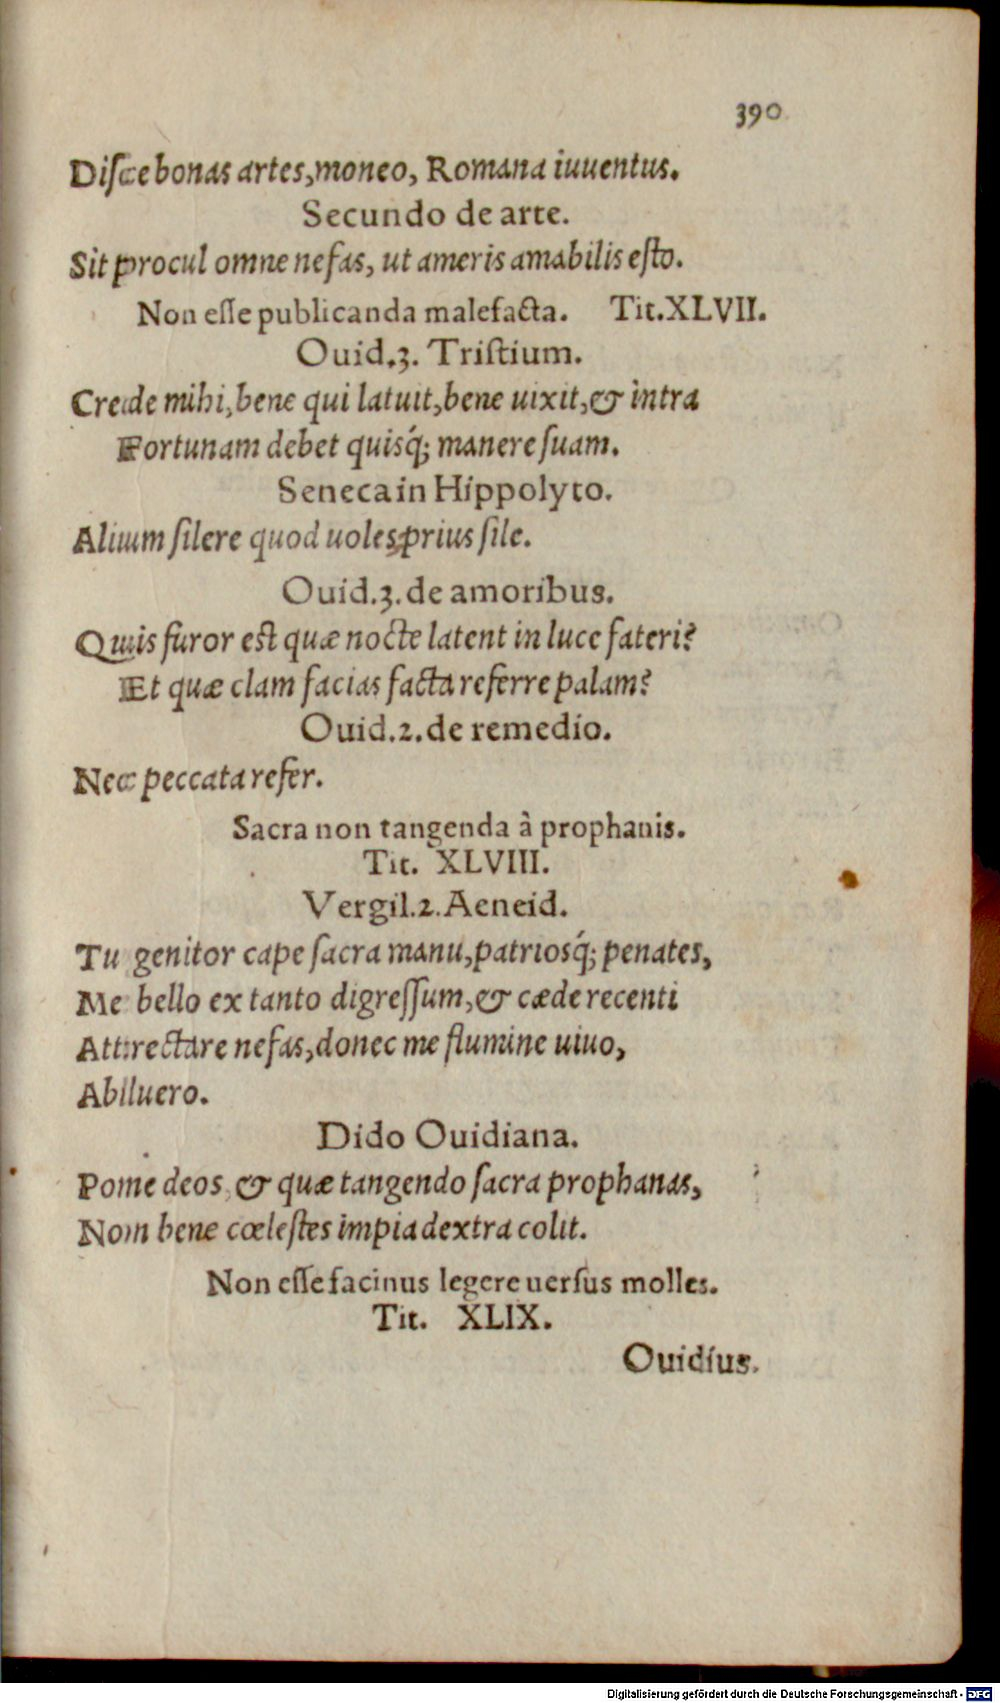 390
Diſce bonas artes, moneo, Romana iuuentus.
Secundo de arte.
Sit procul omne nefas, ut ameris amabilis eſto.
Non eſſe publicanda malefacta. Tit. XLVII.
Ouid. 3. Triſtium.
Crede mihi, bene qui latuit, bene uixit, & intra
Fortunam debet quisq́; manere ſuam.
Seneca in Hippolyto.
Alium ſilere quod uoles, prius ſile.
Ouid. 3. de amoribus.
Quis furor est quæ nocte latent in luce fateri?
Et quæ clam facias facta referre palam?
Ouid. 2. de remedio.
Nec peccata refer.
Sacra non tangenda à prophanis.
Tit. XLVIII.
Vergil. 2. Aeneid.
Tu genitor cape ſacra manu, patriosq́; penates,
Me bello ex tanto digreſſum, & cæde recenti
Attrectare nefas, donec me flumine uiuo,
Abluero.
Dido Ouidiana.
Pone deos, & quæ tangendo ſacra prophanas,
Non bene cœleſtes impia dextra colit.
Non eſſe facinus legere uerſus molles.
Tit. XLIX.
Ouidius.
Digitalisierung gefördert durch die Deutsche Forschungsgemeinschaft - DFG